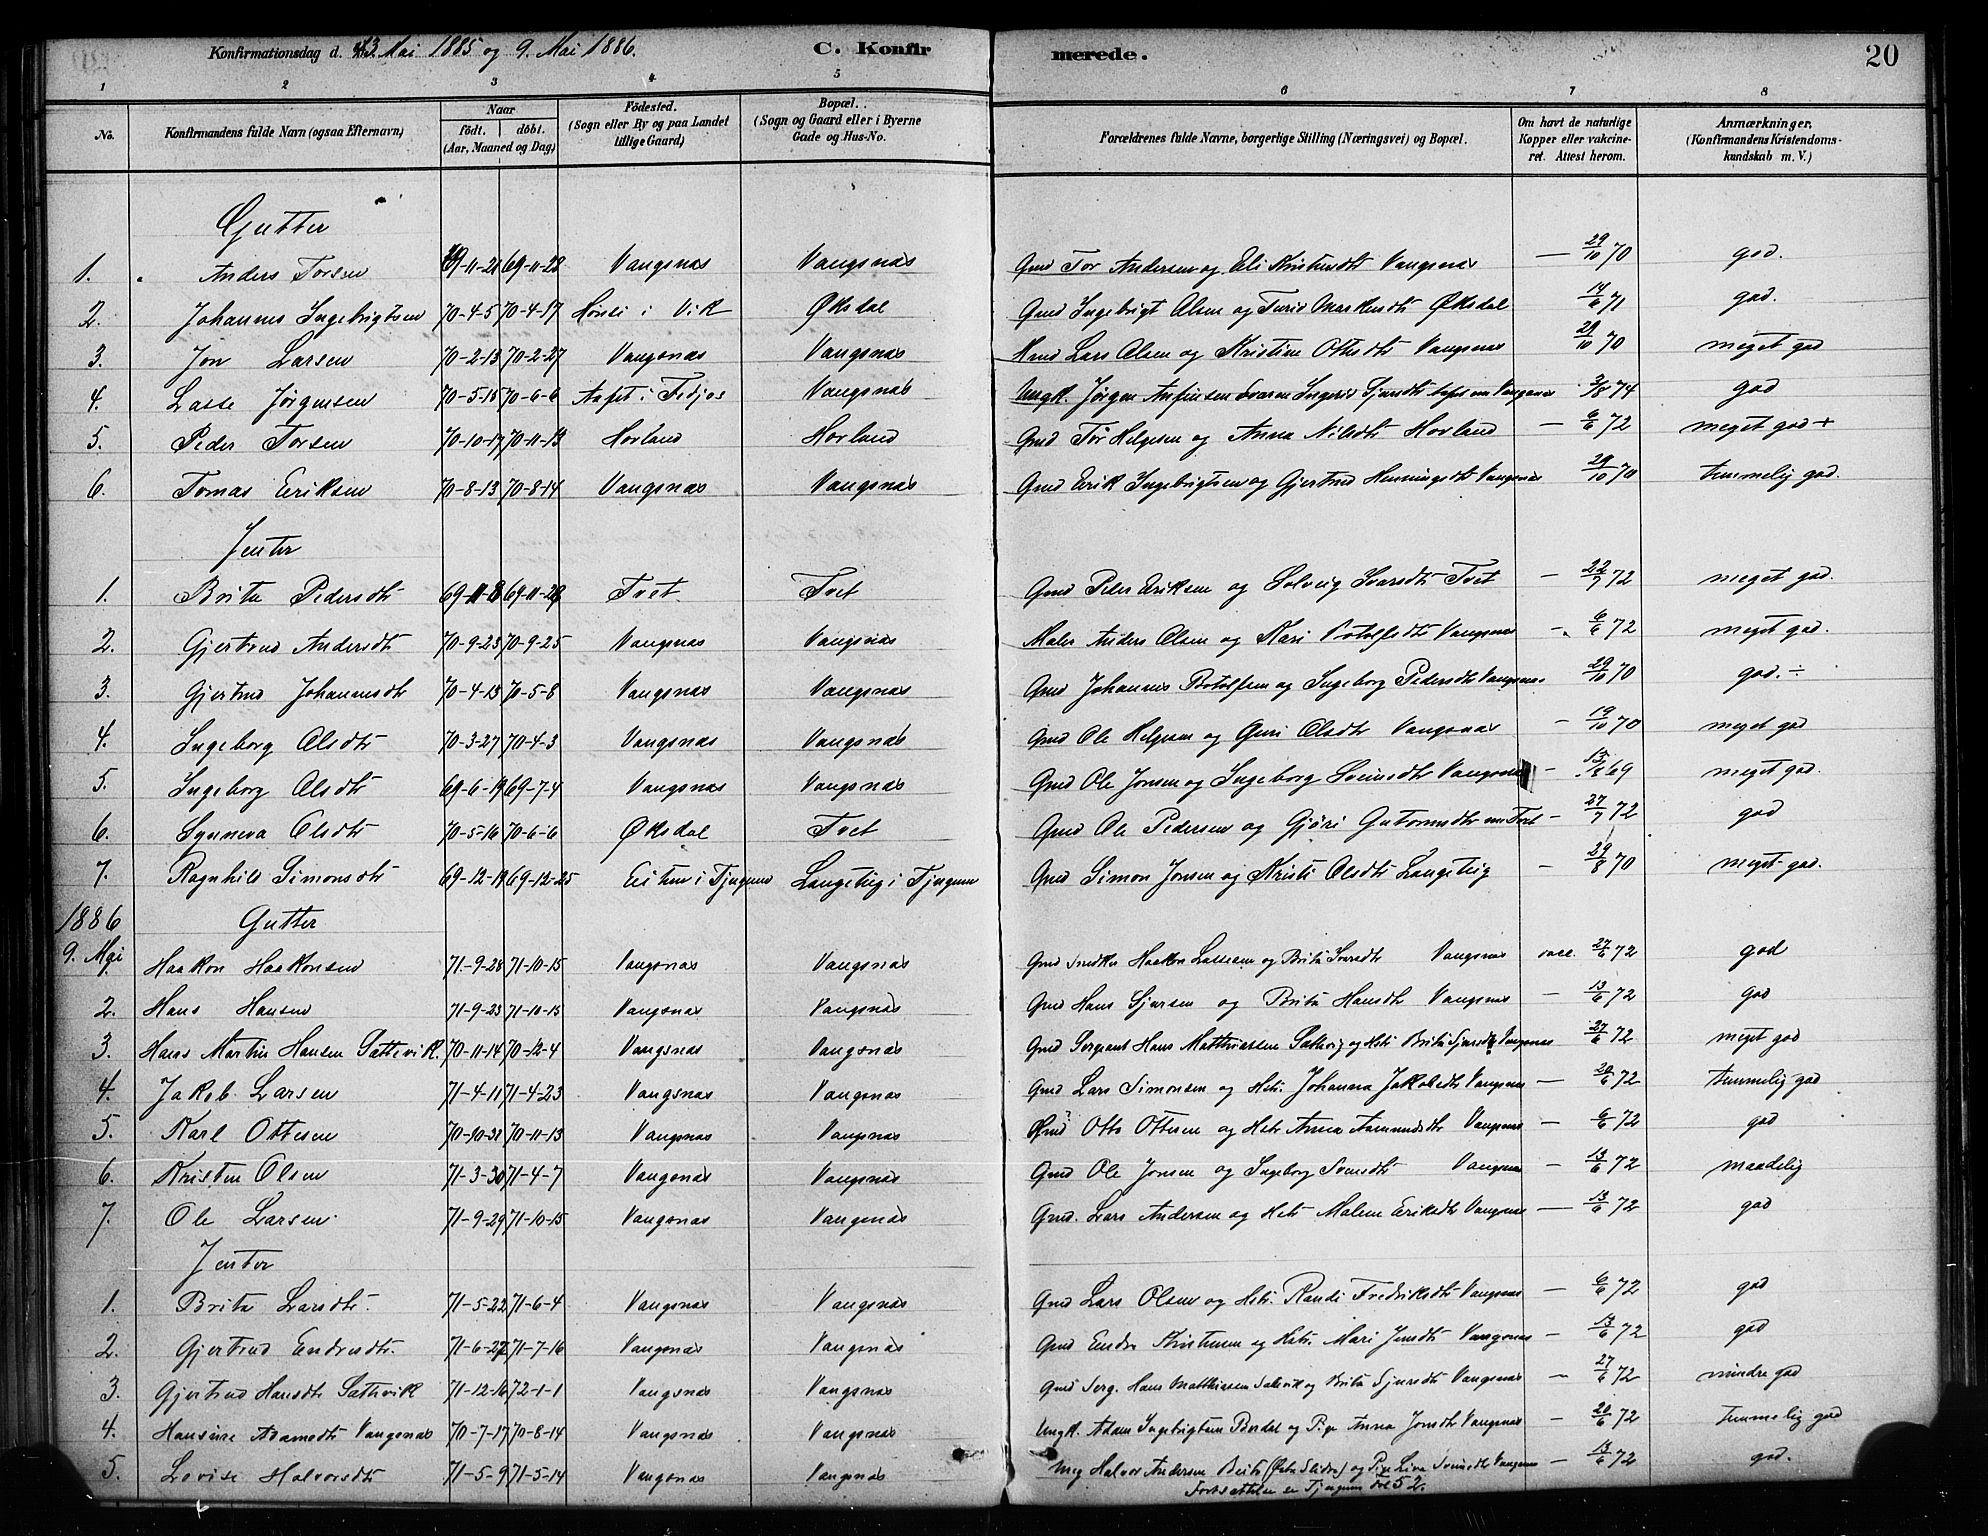 Konfirmationsdag d. 3 Mai 1885 og 9. Mai 1886. C. Konfirmerede. 20
1 2 3 4 5 6 7 8
No. Konfirmandens fulde Navn (ogsaa Efternavn) Naar født. døbt. (Aar, Maaned og Dag) Födested. (Sogn eller By og paa Landet tillige Gaard) Bopæl. (Sogn og Gaard eller i Byerne Gade og Hus-No. Forældrenes fulde Navne, borgerlige Stilling (Næringsvei) og Bopæl. Om havt de naturlige Kopper eller vakcineret. Attest herom. Anmærkninger, (Konfirmandens Kristendomskundskab m. V.)
Gutter
1. Anders Torsen 69-11-21 69-11-28 Vangsnas Vangsnas Gmd Tor Andersen og Eli Vangsnas — 29/10 70 god.
2. Johannes Ingebrigtsen 70-4-5 70-4-17 i Vik Øksdal Gmd Ingebrigt Olsen og Turid Øksdal 14/6 71 god.
3. Jon Larsen 70-2-13 70-2-27 Vangsnas Vangsnas Lars Olsen og Kristine Vangsnas 29/10 70 meget god
4. Lasse Jørgensen 70-5-15 70-6-6 Vangsnas Ungk. Jørgen 3/8 74 god
5. Peder Torsen 70-10-17 70-11-13 Hovland Hovland Gmd Tor Helgesen og Anna Nilsdtr Hovland — 6/6 72 meget god +
6. Tomas Eriksen 70-8-13 70-8-14 Vangsnas Vangsnas Gmd Erik Ingebrigtsen og Gjertrud Henningsdtr Vangsnas 29/10 70 temmelig god.
Jenter
1. Brita Pedersdtr 69-11-8 69-11-28 Tvet Tvet Gmd Peder Eriksen og Solveig Ivarsdtr Tvet — 22/7 72 meget god.
2. Gjertrud Andersdtr 70-9-23 70-9-25 Vangsnas Vangsnas Maler Anders Olsen og Kari Botolfsdtr Vangsnas — 6/6 72 meget god.
3. Gjertrud Johannesdtr 70-4-13 70-5-8 Vangsnas Vangsnas Gmd Johannes Botolfsen og Ingeborg Pedersdtr Vangsnas 29/10 70 god. ÷
4. Ingeborg Olsdtr 70-3-27 70-4-3 Vangsnas Vangsnas Gmd Ole Helgesen og Guri Olsdtr Vangsnas — 19/10 70 meget god
5. Ingeborg Olsdtr 69-6-19 69-7-4 Vangsnas Vangsnas Gmd Ole Jonsen og Ingeborg Svensdtr Vangsnas — 69 meget god.
6. Synneva Olsdtr 70-5-16 70-6-6 Øksdal Tvet Gmd Ole Pedersen og Gjøri Gutormsdtr Tvet — 27/7 72 god
7. Ragnhild Simonsdtr 69-12-19 69-12-25 i Tjugum Langeteig i Tjugum Gmd Simon Jonsen og Kristi Olsdtr Langeteig — 29/8 70 meget god.
1886 Gutter
9. Mai
1. Haakon Haakonsen 71-9-28 71-10-15 Vangsnas Vangsnas Gmd Snedker Haakon Lassesen og Brita Ivarsdtr Vangsnas vacc. 27/6 72 god
2. Hans Hansen 71-9-23 71-10-15 Vangsnas Vangsnas Gmd Hans Sjursen og Brita Hansdtr Vangsnas — 13/6 72 god
3. Hans Martin Hansen Sattevik. 70-11-14 70-12-4 Vangsnas Vangsnas Gmd Sergeant Hans Matthiassen og Hstr Brita Sjursdtr Vangsnas 27/6 72 meget god
4. Jakob Larsen 71-4-11 71-4-23 Vangsnas Vangsnas Gmd Lars Simonsen og Hstr. Johanna Jakobsdtr Vangsnas — 20/6 72 temmelig god
5. Karl Ottesen 70-10-31 70-11-13 Vangsnas Vangsnas Gmd Otto Ottesen og Hstr Anna Aamundsdtr Vangsnas — 6/6 72 god
6. Kristen Olsen 71-3-30 71-4-7 Vangsnas Vangsnas Gmd Ole Jonsen og Ingeborg Svensdtr Vangsnas — 13/6 72 maadelig
7. Ole Larsen 71-9-29 71-10-15 Vangsnas Vangsnas Gmd. Lars Andersen og Hstr Malene Eriksdtr Vangsnas — 13/6 72 god
Jenter
1. Brita Larsdtr. 71-5-22 71-6-4 Vangsnas Vangsnas Gmd Lars Olsen og Hstr. Randi Fredriksdtr Vangsnas — 6/6 72 god
2. Gjertrud Endresdtr. 71-6-27 71-7-16 Vangsnas Vangsnas Gmd Endre Kristensen og Hstr. Mari Jensdtr Vangsnas — 13/6 72 god
3. Gjertrud Hansdtr Sattevik 71-12-16 72-1-1 Vangsnas Vangsnas Gmd Serg. Hans Matthiassen og Brita Sjursdtr Vangsnas — 27/6 72 mindre god
4. Hansine Adamsdtr Vangsnas 70-7-17 70-8-14 Vangsnas Vangsnas Ungk. Adam Ingebrigtsen og Pige Anna Jonsdtr Vangsnas — 20/6 72 temmelig god
5. Lovise Halvorsdtr 71-5-9 71-5-14 Vangsnas Vangsnas Halvor Andersen (Østre Slidre) og Pige Vangsnas — 13/6 72 god.
Fortsættelse er Tjugum fol 52.